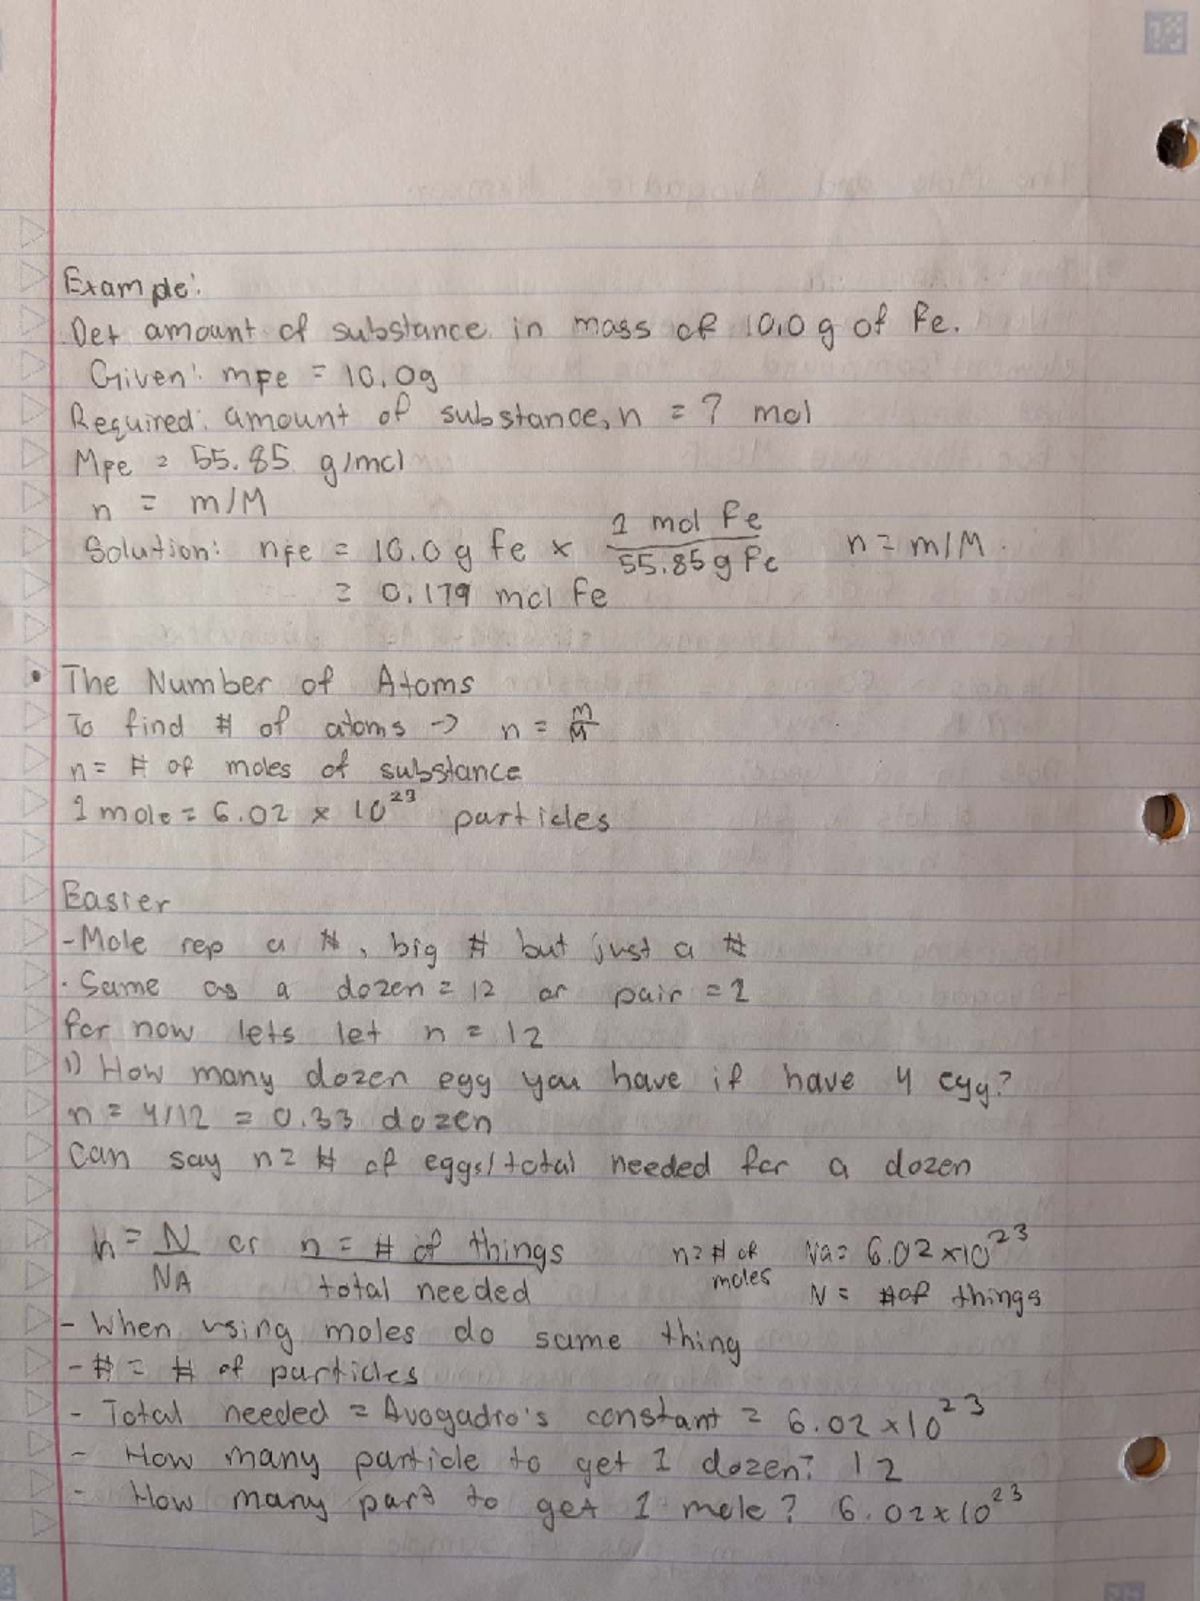 Example:
Det amount of substance in mass of 10.0 g of Fe.
Given: mFe = 10.0g
Required: amount of substance, n = ? mol
MFe = 55.85 g/mol
n = m/M
Solution: nFe = 10.0 g Fe × 1 mol Fe / 55.85 g Fe n = m/M.
= 0.179 mol Fe
• The Number of Atoms
To find # of atoms → n = m/M
n = # of moles of substance
1 mole = 6.02 × 10²³ particles
Easier
- Mole rep a #, big # but just a #
· Same as a dozen = 12 or pair = 2
for now lets let n = 12
1) How many dozen egg you have if have 4 egg?
n = 4/12 = 0.33 dozen
Can say n = # of eggs/total needed for a dozen
n = N/NA or n = # of things / total needed n = # of moles Na = 6.02 ×10²³
N = # of things
- When using moles do same thing
- # = # of particles
- Total needed = Avogadro's constant = 6.02 ×10²³
- How many particle to get 1 dozen? 12
- How many part to get 1 mole? 6.02×10²³